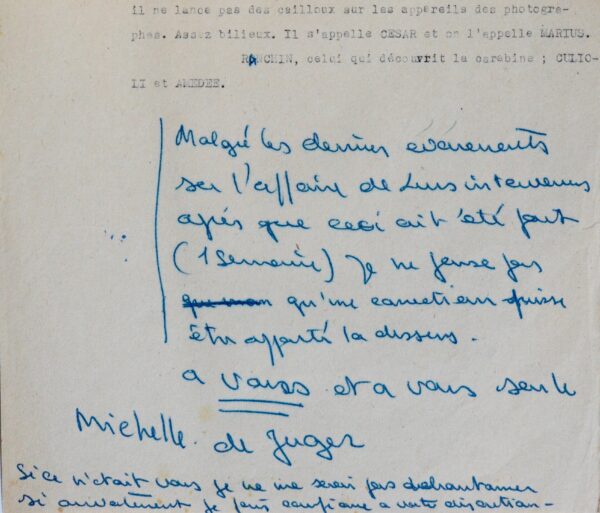 il ne lance pas des cailloux sur les appareils des photogra-
phes. Assez bilieux. Il s'appelle CESAR et on l'appelle MARIUS.
RANCHIN, celui qui découvrit la carabine ; CULIO-
LI et AMEDEE.
Malgré les derniers évènements
sur l'affaire de Lurs intervenus
après que ceci ait été fait
(1 Semaine) je ne pense pas
qu'une correction puisse
être apporté la dessus.
a vous et a vous seule
Michelle de Juger
Si ce n'était vous je ne me serais pas
si ouvertement je fais confiance a votre discretion-